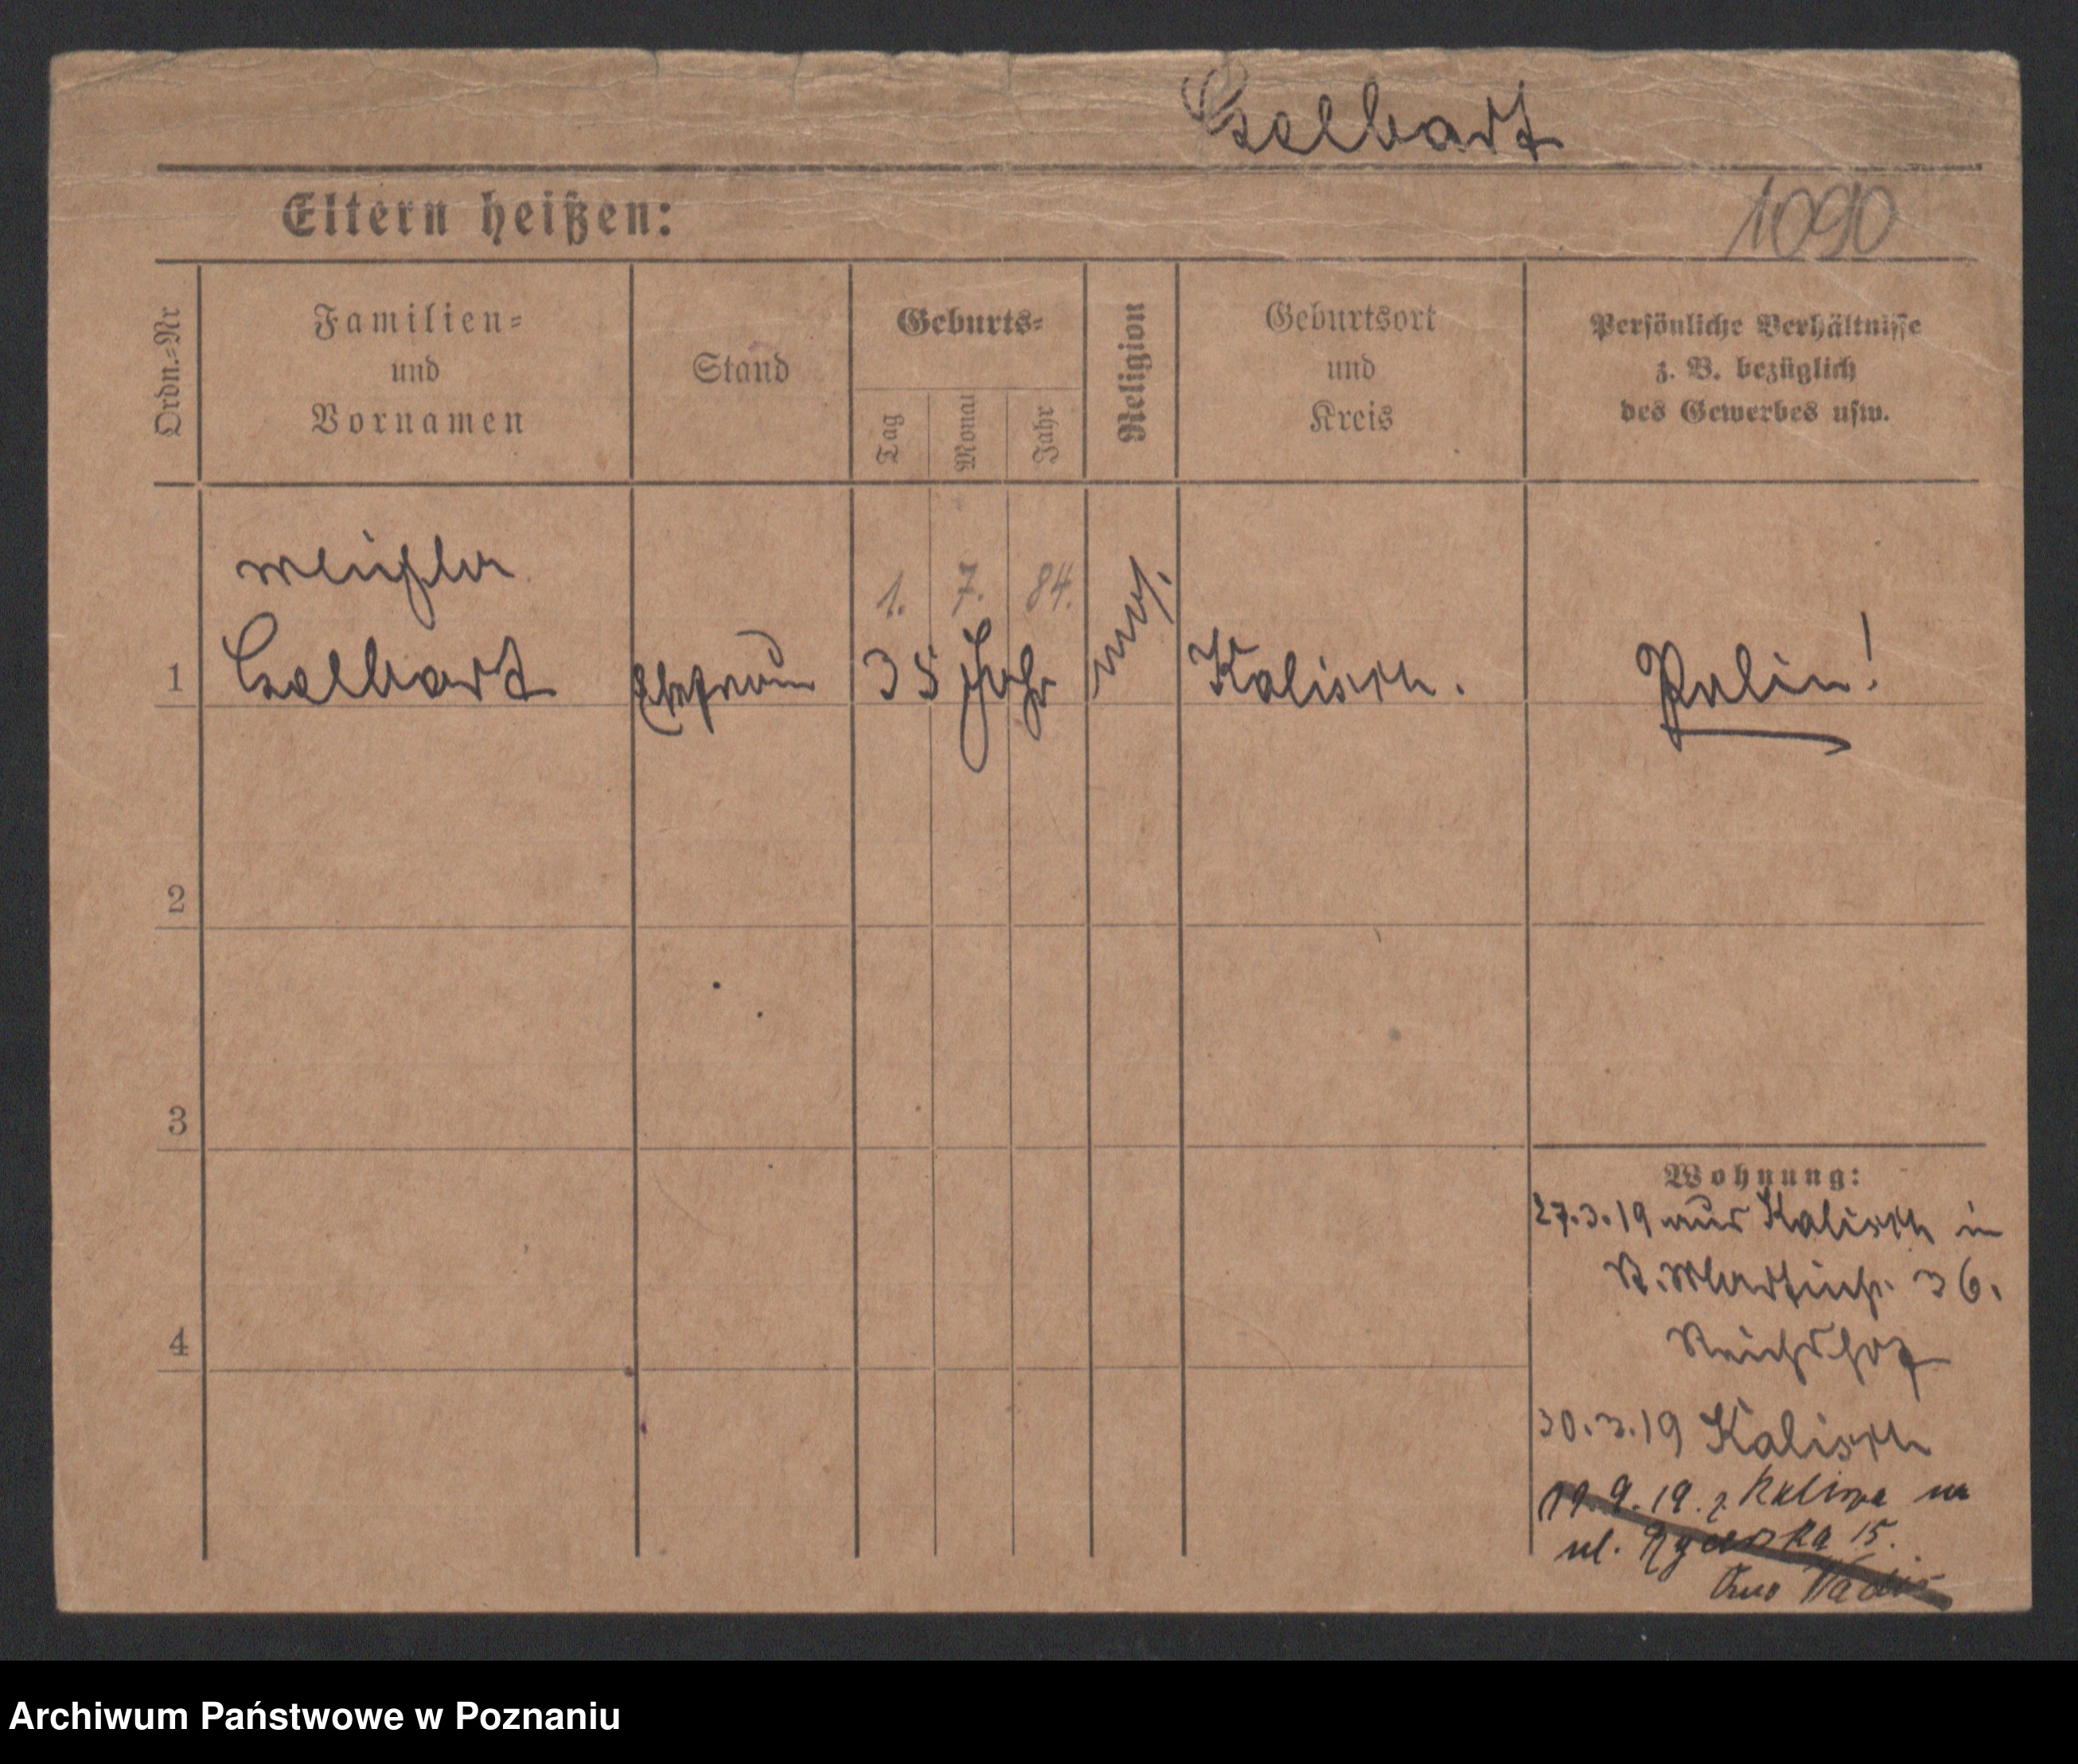 Gelbart
Eltern heißen:
1090
Ordn.=Nr
Familien=
und
Vornamen
Stand
Geburts=
Tag
Monat
Jahr
Religion
Geburtsort
und
Kreis
Persönliche Verhältnisse
z. B. bezüglich
des Gewerbes usw.
1. 7. 84.
1
Gelbart
Ehefrau
35 Jahr
mos.
Kalisch.
Polin!
2
3
4
Wohnung:
27.3.19 aus Kalisch in
St. Martinstr. 36.
Reichshof
30.3.19 Kalisch
19.9.19. z Kalisza na
ul. 15.
Quo Vadis
Archiwum Państwowe w Poznaniu